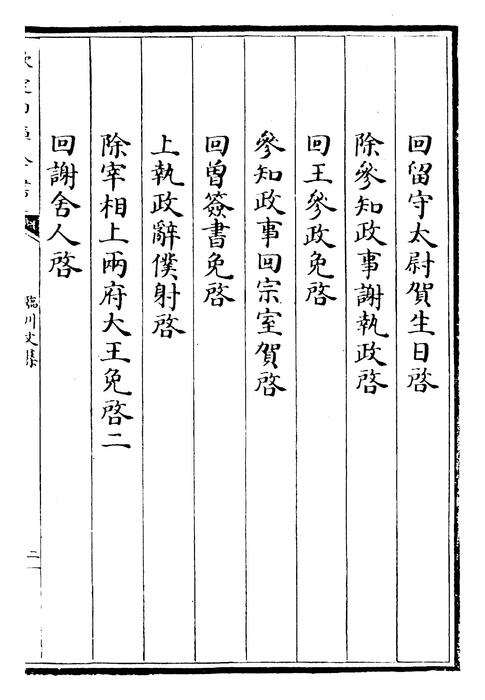 回留守太尉賀生日啓
除參知政事謝執政啓
回王參政免啓
參知政事回宗室賀啓
回曾簽書免啓
上執政辭僕射啓
除宰相上兩府大王免啓二
回謝舍人啓
臨川文集
二